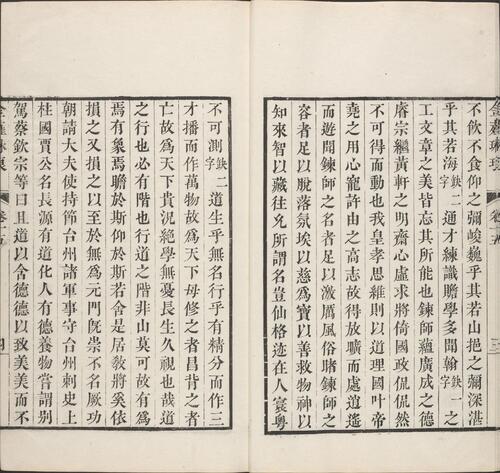 不飲不食仰之彌峻巍乎其若山挹之深湛
乎其若海缺二字通才練識贍學多聞翰缺一字之
工文章之美皆忘其所能也鍊師蘊廣成之德
睿宗繼黃軒之明齋心虛求將倚國政侃侃然
不可得而動也我皇孝思維則以道理國叶帝
堯之用心寵許由之高志故得放曠而處逍遙
而遊聞鍊師之名者足以激厲風俗睹鍊師之
容者足以脫落氛埃以慈為寶以善救物神以
知來智以藏往允所謂名豈仙格迹在人寰粵
不可測缺二字道生乎無名行乎有精分而作三
才播而作萬物故為天下母修之者昌背之者
亡故為天下貴況絕學無憂長生久視也哉道
之行也必有階也行道之階非山莫可故有為
焉有象焉瞻於斯仰於斯若舍是居教將奚依
損之又損之以至於無為元門旣崇不名厥功
朝請大夫使持節台州諸軍事守台州刺史上
柱國賈公名長源有道化人有德養物嘗謂別
駕蔡欽宗等曰且道以含德德以致美美而不
金薤琳琅
卷十五
四